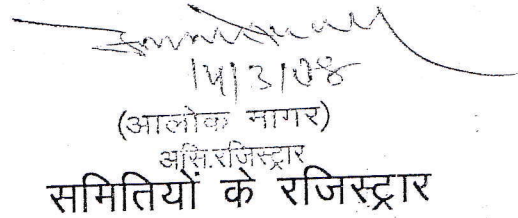 14/3/08
(आलोक नागर)
असि.रजिस्ट्रार
समितियों के रजिस्ट्रार